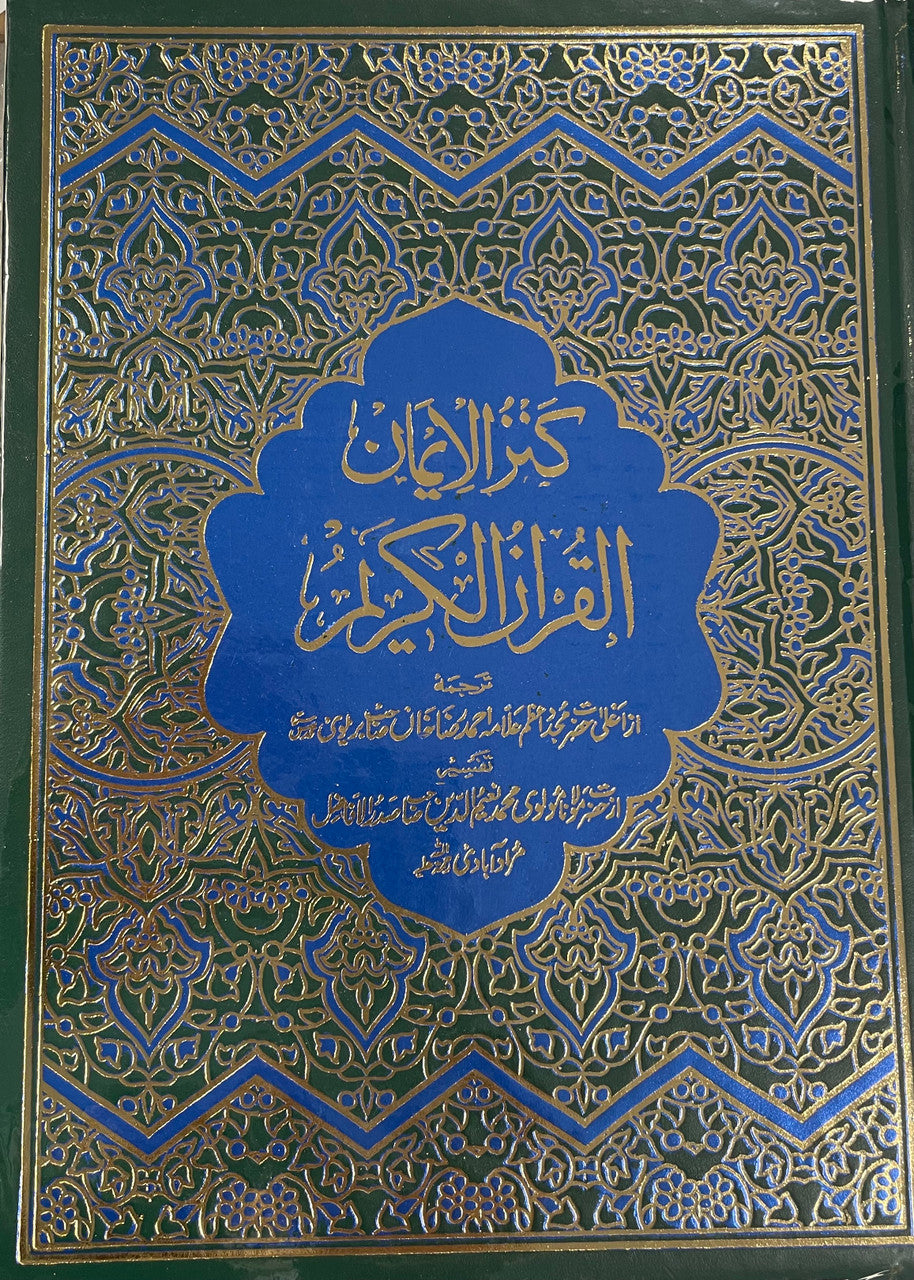 كَنْزُ الْاِیْمَان
القُرْاٰنُ الْكَرِیْمُ
ترجمة
از اعلیٰ حضرت مجدد اعظم علامہ احمد رضا خان صاحب بریلوی
تفسیر
از حضرت مولانا مولوی محمد نعیم الدین صاحب صدر الافاضل
مراد آبادی